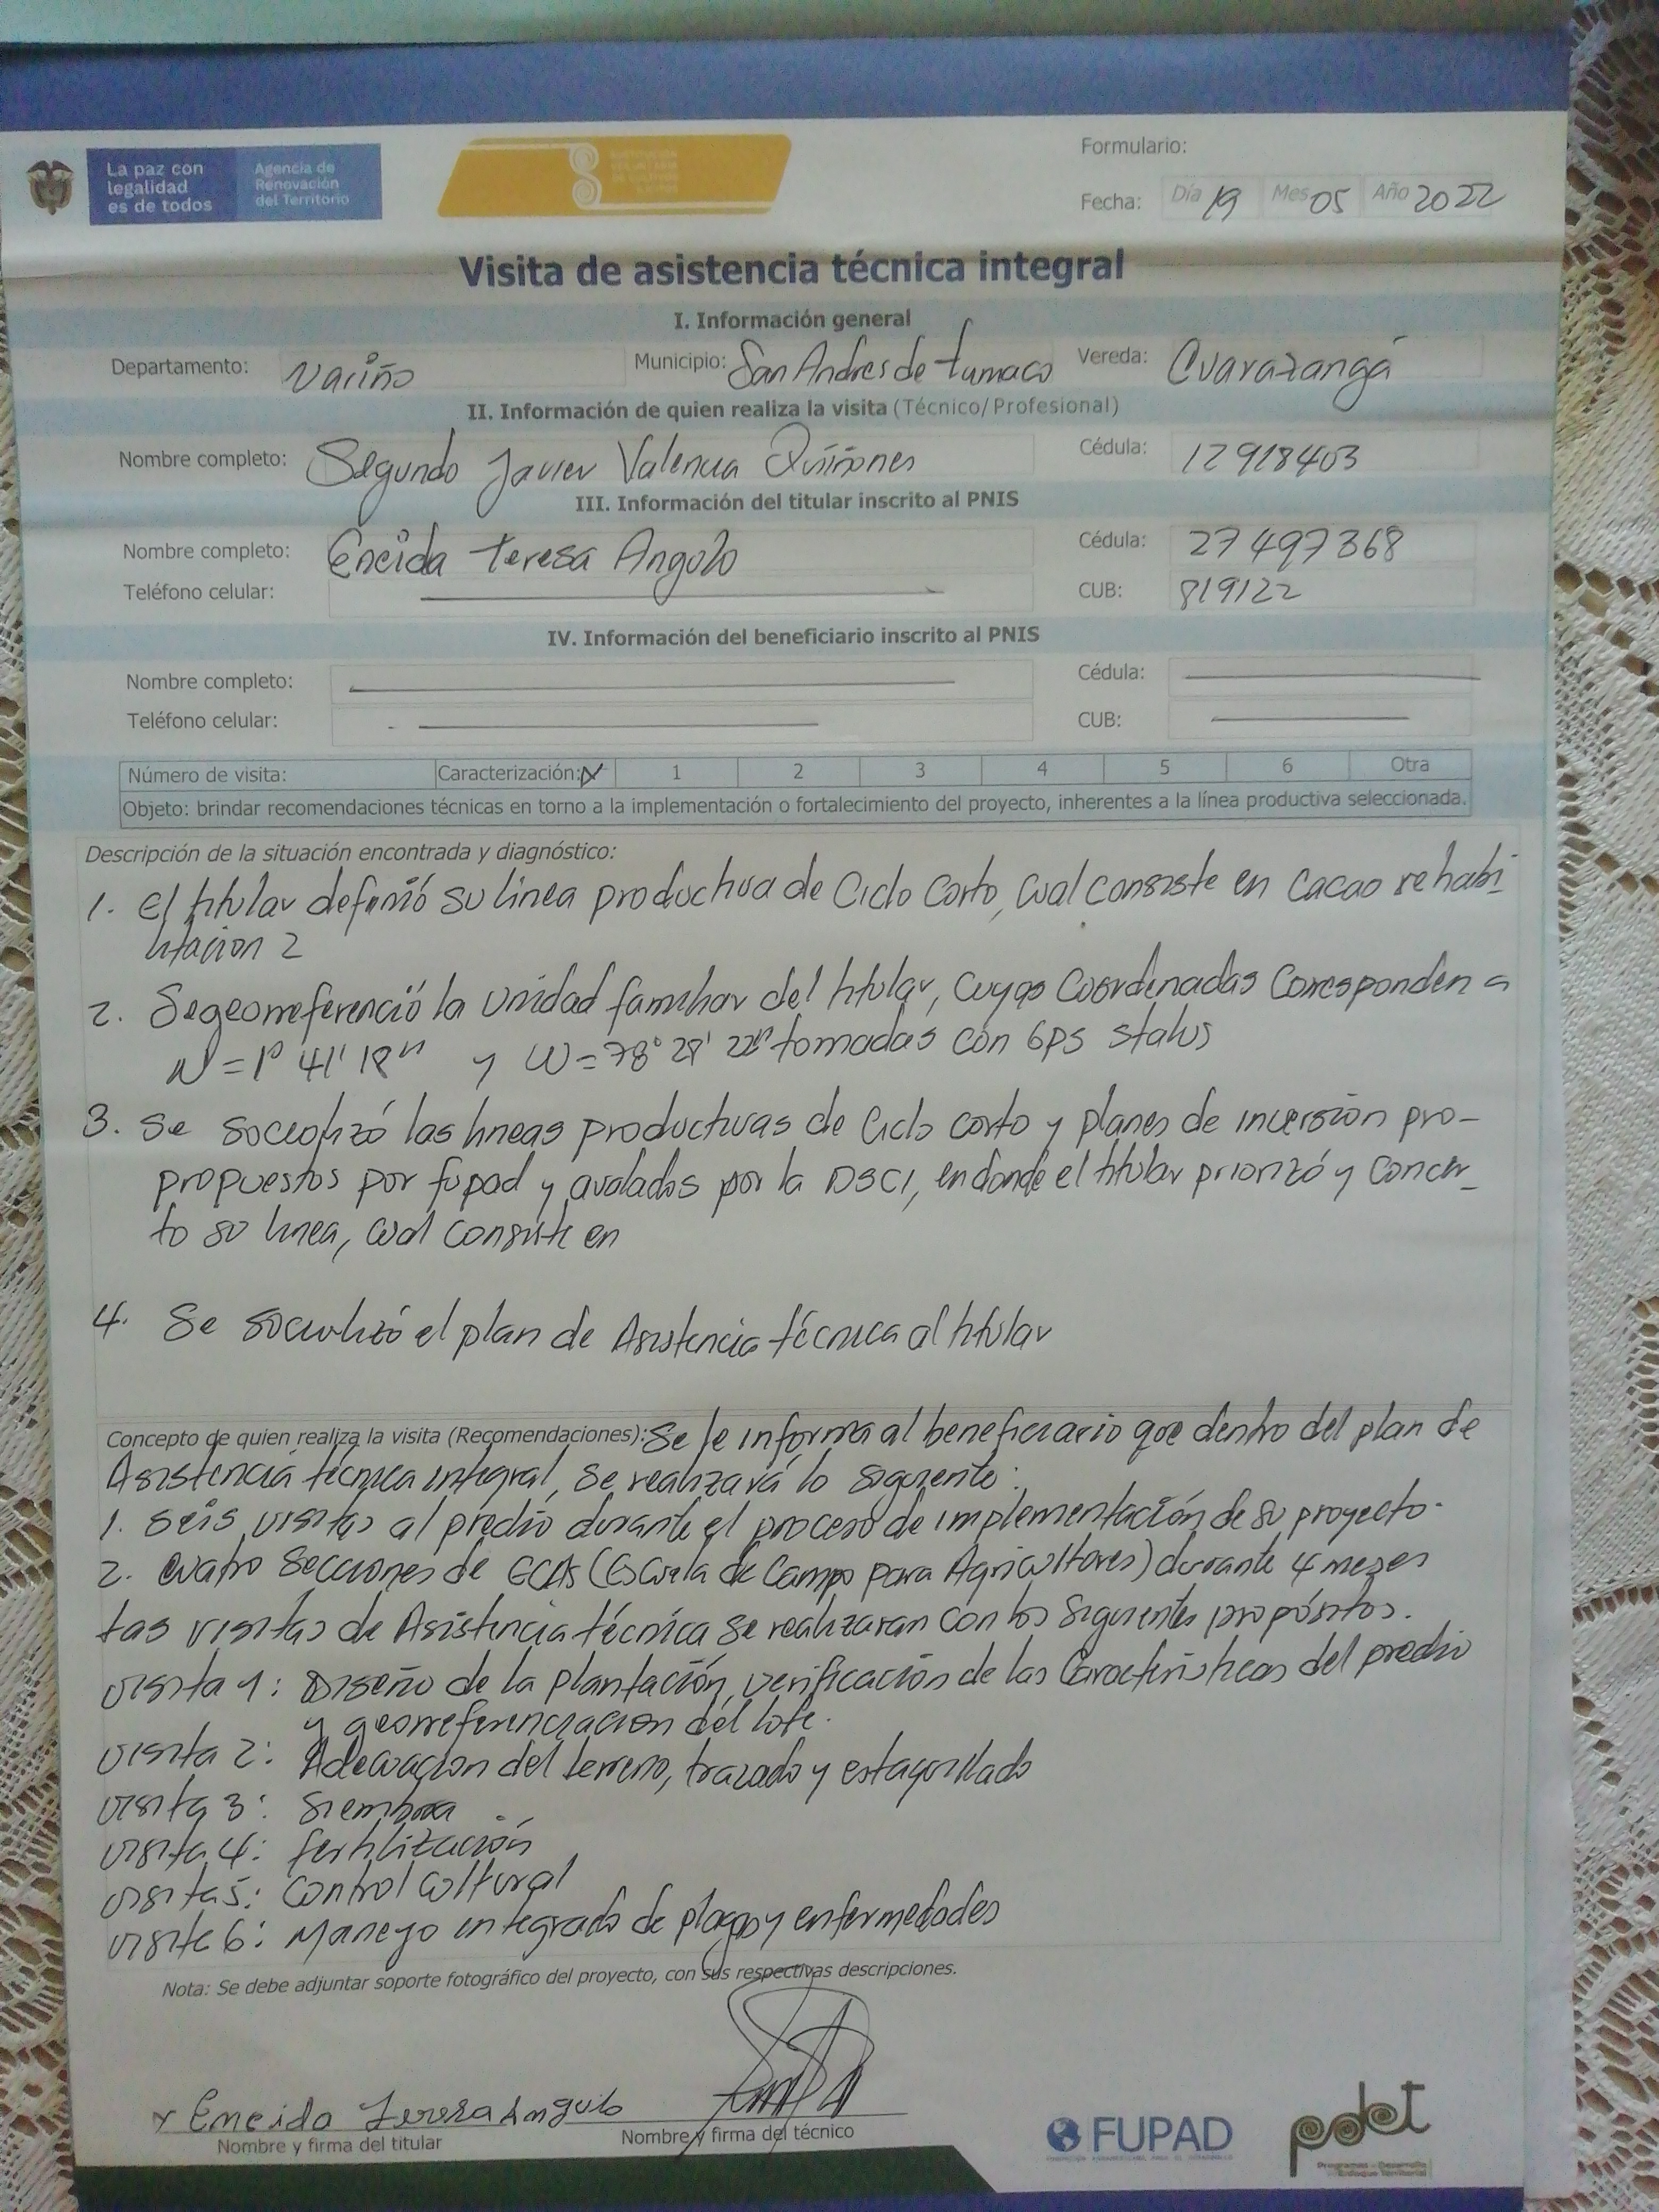 La paz con
legalidad
es de todos
Agencia de
Renovación
del Territorio
Formulario:
Fecha: Día 19 Mes 05 Año 2022
Visita de asistencia técnica integral
I. Información general
Departamento: Nariño Municipio: San Andres de tumaco Vereda:
II. Información de quien realiza la visita (Técnico/Profesional)
Nombre completo: Segundo Javier Valencia Quiñones Cédula: 12918403
III. Información del titular inscrito al PNIS
Nombre completo: Eneida teresa Angolo Cédula: 27497368
Teléfono celular: CUB: 819122
IV. Información del beneficiario inscrito al PNIS
Nombre completo: Cédula:
Teléfono celular: CUB:
Número de visita: Caracterización: 1 2 3 4 5 6 Otra
Objeto: brindar recomendaciones técnicas en torno a la implementación o fortalecimiento del proyecto, inherentes a la línea productiva seleccionada.
Descripción de la situación encontrada y diagnóstico:
1. el titular definió su linea productiva de Ciclo Corto, cual consiste en Cacao rehabi-
litacion 2
2. Se georreferenció la unidad familiar del titular, cuyas Coordenadas Corresponden a
N = 1° 41' 18" y W = 78° 28' 22" tomadas con GPS status
3. Se socializó las lineas productivas de Ciclo corto y planes de inversion pro-
propuestos por fupad y avalados por la DSCI, en donde el titular priorizó y Concer-
to su linea, cual consiste en
4. Se socializó el plan de Asistencia técnica al titular
Concepto de quien realiza la visita (Recomendaciones): Se le informa al beneficiario que dentro del plan de
Asistencia técnica integral, se realizará lo siguiente:
1. Seis visitas al predio durante el proceso de implementación de su proyecto.
2. cuatro Secciones de ECAs (Escuela de Campo para Agricultores) durante 4 meses
Las visitas de Asistencia técnica se realizaran con los siguientes propósitos.
visita 1: Diseño de la plantación, verificación de las Características del predio
y georreferenciacion del lote.
visita 2: Adecuacion del terreno, trazado y estaquillado
visita 3: Siembra
visita 4: fertilización
visita 5: Control Cultural
visita 6: Manejo integrado de plagas y enfermedades
Nota: Se debe adjuntar soporte fotográfico del proyecto, con sus respectivas descripciones.
x Eneida Teresa Angulo
Nombre y firma del titular
Nombre y firma del técnico
FUPAD
pdet